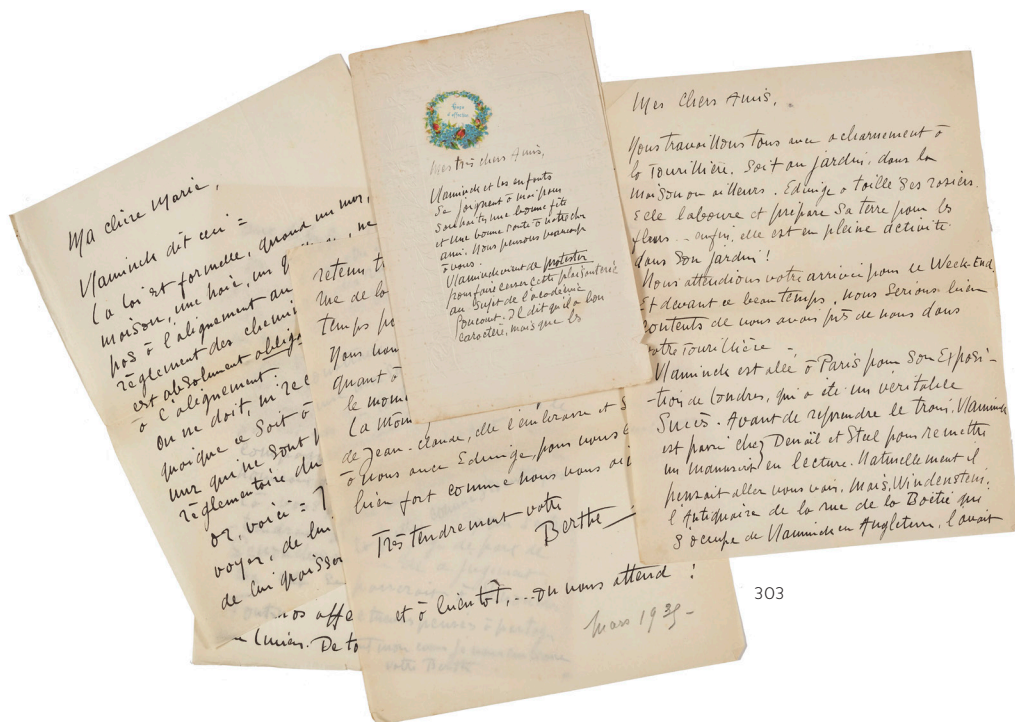 Ma chère Marie,
Vlaminck dit ceci =
La loi est formelle, quand un mur,
maison, une haie, un
pas à l'alignement au
règlement des chemi
est absolument oblig
à l'alignement.
On ne doit, ni re
quoique ce soit à
mur qui ne sont p
règlementaire du
or, voici =
voyer, de lui
de lui
nos affe
Lucien. De to
retenu
rue de la
temps
Vous
quant à
le mom
La
de Jean-Claude, elle l'embrasse et s
à nous avec Edwige, pour vous
bien fort comme nous vous
Très tendrement votre
Berthe
et à bientôt, ... on vous attend !
Mars 1935-
Mes très chers Amis,
Vlaminck et les enfants
se joignent à moi pour
souhaiter une bonne fête
et une bonne santé à notre cher
ami. Nous pensons beaucoup
à vous.
Vlaminck vient de protester
pour faire cesser cette plaisanterie
au sujet de l'académie
Goncourt. Il dit qu'il a bon
caractère, mais que les
Mes chers Amis,
Nous travaillons tous avec acharnement à
la Tourillière. Soit au jardin, dans la
maison ou ailleurs. Edwige a taillé ses rosiers.
Elle laboure et prépare sa terre pour les
fleurs - enfin, elle est en pleine activité
dans son jardin !
Nous attendions votre arrivée pour le Week-End.
Et devant ce beau temps, nous serions bien
contents de vous avoir près de nous dans
notre Tourillière -
Vlaminck est allé à Paris pour son Exposi-
-tion de Londres, qui a été un véritable
Succès. Avant de reprendre le train, Vlaminck
est passé chez Denoël et Steel pour remettre
un manuscrit en lecture. Naturellement il
pensait aller vous voir. Mais, Windenstein,
l'Antiquaire de la rue de la Boëtie qui
s'occupe de Vlaminck en Angleterre, l'avait
303